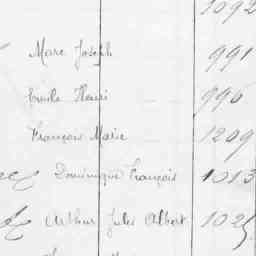 1092
Marc Joseph 991
Emile Henri 996
François Marie 1209
Dominique François 1013
Arthur Jules Albert 1025